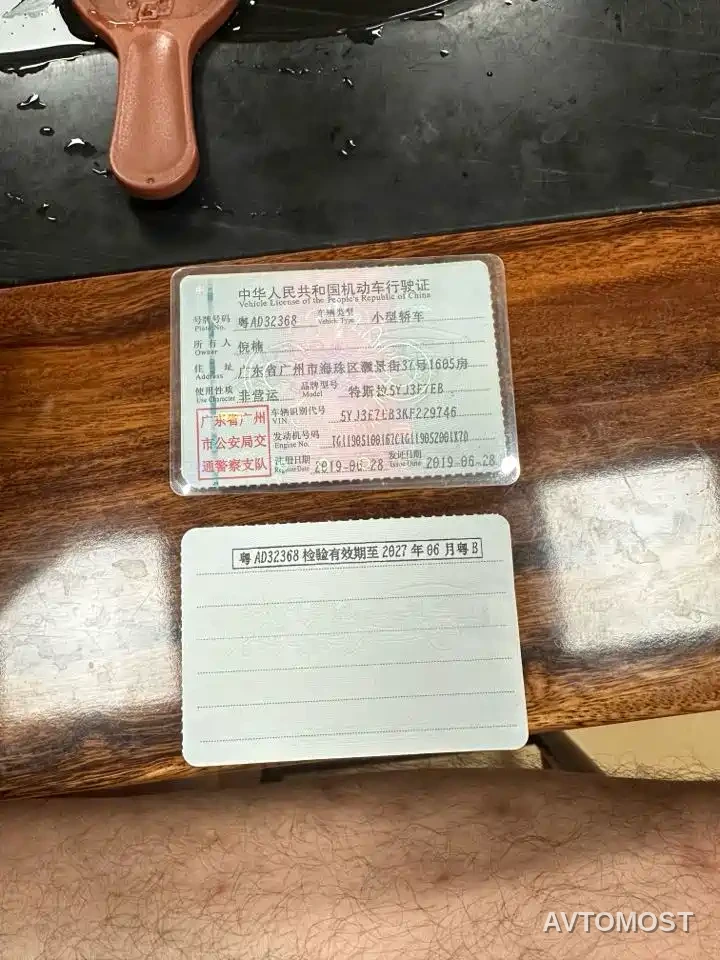 中华人民共和国机动车行驶证
Vehicle License of the People's Republic of China
号牌号码 粤AD32368 车辆类型 小型轿车
Plate No. Vehicle Type
所有人 倪楠
Owner
住址 广东省广州市海珠区灏景街37号1605房
Address
使用性质 非营运 品牌型号 特斯拉5YJ3E7EB
Use Character Model
广东省广州
市公安局交
通警察支队
车辆识别代号 5YJ3E7EB3KF229746
VIN
发动机号码
Engine No.
注册日期 2019-06-28 发证日期 2019-06-28
Register Date Issue Date
粤AD32368 检验有效期至 2027 年 06 月粤 B
AVTOMOST